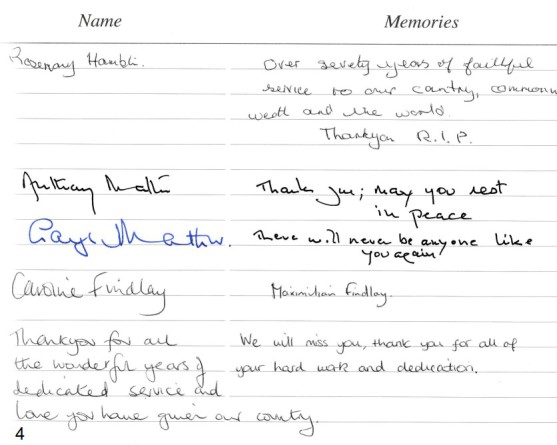 Name Memories
Rosemary Hambli. Over sevety years of faithful
service to our cantry, common
wealth and the world.
Thankyou R.I.P.
Anthony Thank you; may you rest
in peace
Gaye Mather. There will never be anyone like
you again
Caroline Findlay Maximilian Findlay.
Thankyou for all We will miss you, thank you for all of
the wonderful years of your hard work and dedication.
dedicated service and
love you have given our country.
4